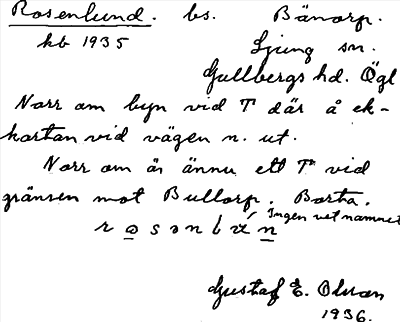 Rosenlund. bs. Bänorp.
kb 1935 Ljung sn.
Gullbergs hd. Ögl
Norr om byn vid T där å ek-
kartan vid vägen n. ut.
Norr om är ännu ett Tn vid
gränsen mot Bullorp. Borta.
Ingen vet namnet
Gustaf E. Olson
1936.